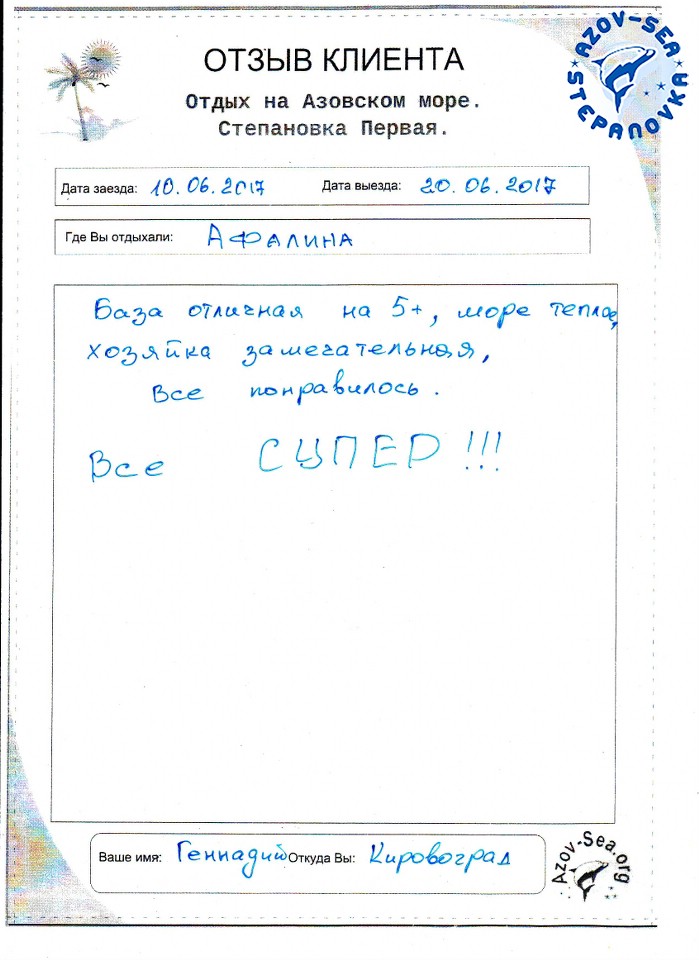 ОТЗЫВ КЛИЕНТА
AZOV-SEA
STEPANOVKA
Отдых на Азовском море.
Степановка Первая.
Дата заезда: 10.06.2017 Дата выезда: 20.06.2017
Где Вы отдыхали: АФАЛИНА
База отличная на 5+, море теплое,
хозяйка замечательная,
Все понравилось.
Все СУПЕР!!!
Ваше имя: Геннадий Откуда Вы: Кировоград
Azov-Sea.org